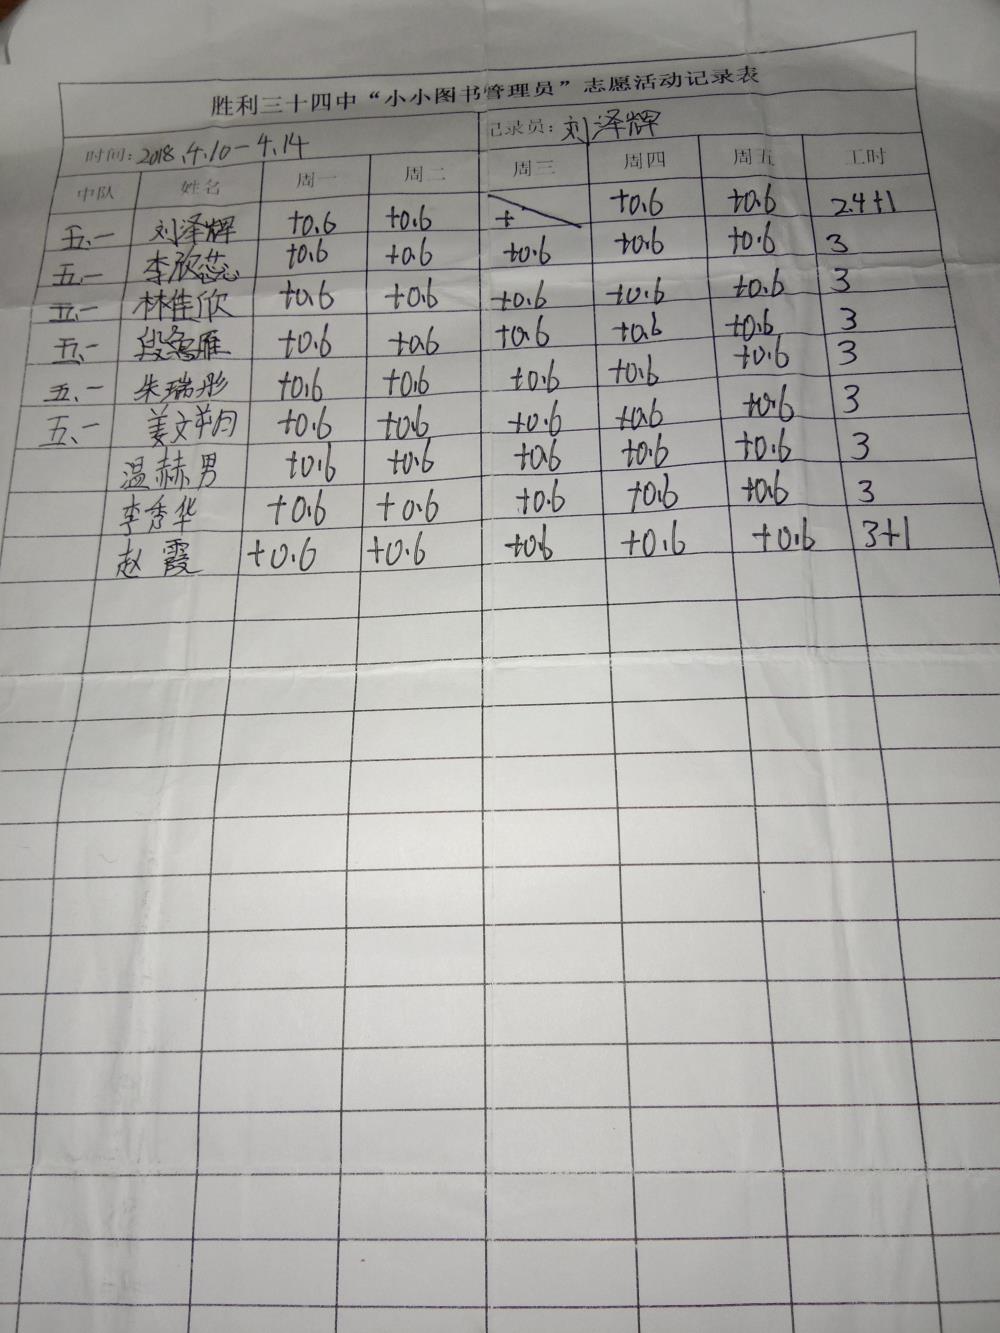 胜利三十四中“小小图书管理员”志愿活动记录表
时间: 2018.4.10-4.14 记录员: 刘泽辉
中队 姓名 周一 周二 周三 周四 周五 工时
五、一 刘泽辉 +0.6 +0.6 + +0.6 +0.6 2.4+1
五、一 李欣蕊 +0.6 +0.6 +0.6 +0.6 +0.6 3
五、一 林佳欣 +0.6 +0.6 +0.6 +0.6 +0.6 3
五、一 段雁 +0.6 +0.6 +0.6 +0.6 +0.6 3
五、一 朱瑞彤 +0.6 +0.6 +0.6 +0.6 +0.6 3
五、一 姜文 +0.6 +0.6 +0.6 +0.6 +0.6 3
温赫男 +0.6 +0.6 +0.6 +0.6 +0.6 3
李秀华 +0.6 +0.6 +0.6 +0.6 +0.6 3
赵霞 +0.6 +0.6 +0.6 +0.6 +0.6 3+1